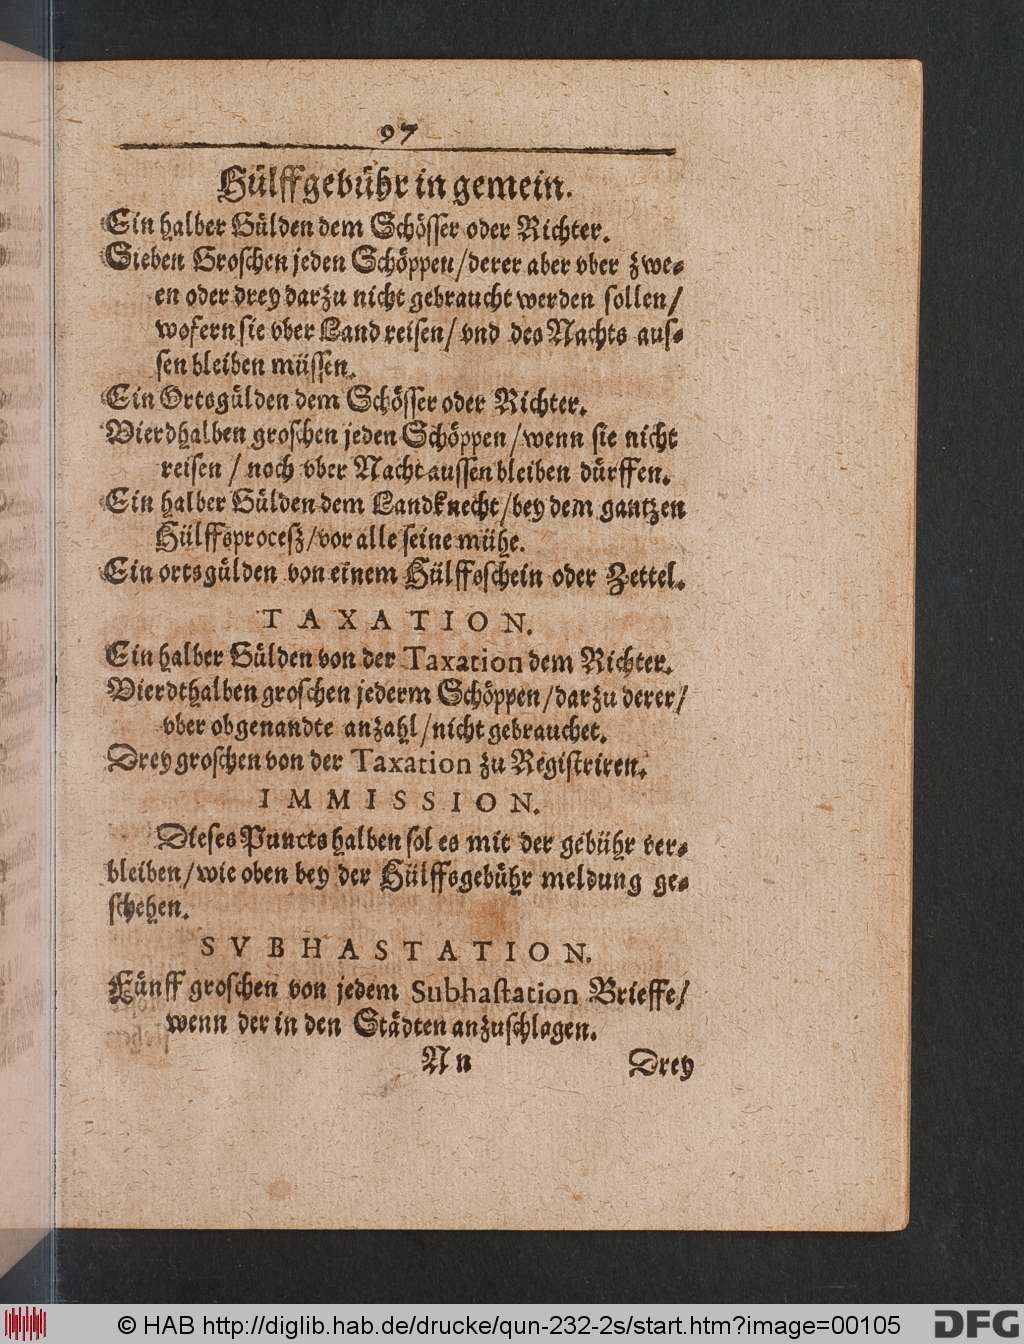 97
Hülffgebühr in gemein.
Ein halber Gülden dem Schösser oder Richter.
Sieben Groschen jeden Schöppen/derer aber vber zwe-
en oder drey darzu nicht gebraucht werden sollen/
wofern sie vber Land reisen/ vnd des Nachts aus-
sen bleiben müssen.
Ein Ortsgülden dem Schösser oder Richter.
Vierdhalben groschen jeden Schöppen/wenn sie nicht
reisen / noch vber Nacht aussen bleiben dürffen.
Ein halber Gülden dem Landknecht/bey dem gantzen
Hülffsprocesz/vor alle seine mühe.
Ein ortsgülden von einem Hülffsschein oder Zettel.
TAXATION.
Ein halber Gülden von der Taxation dem Richter.
Vierdthalben groschen jederm Schöppen/darzu derer/
vber obgenandte anzahl/nicht gebrauchet.
Drey groschen von der Taxation zu Registriren.
IMMISSION.
Dieses Puncts halben sol es mit der gebühr ver-
bleiben/wie oben bey der Hülffsgebühr meldung ge-
schehen.
SVBHASTATION.
Fünff groschen von jedem Subhastation Brieffe/
wenn der in den Städten anzuschlagen.
N n Drey
© HAB http://diglib.hab.de/drucke/qun-232-2s/start.htm?image=00105
DFG